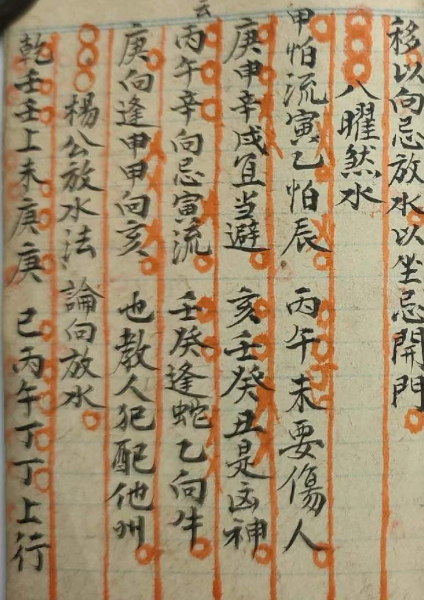 移以向忌放水以坐忌開門
八曜然水
甲怕流寅乙怕辰 丙午未要傷人
庚申辛戍宜当避 亥壬癸丑是凶神
丙午辛向忌寅流 壬癸逢蛇乙向牛
庚向逢申甲向亥 也教人犯配他州
楊公放水法 論向放水
乾壬壬上未庚庚 已丙午丁丁上行
云